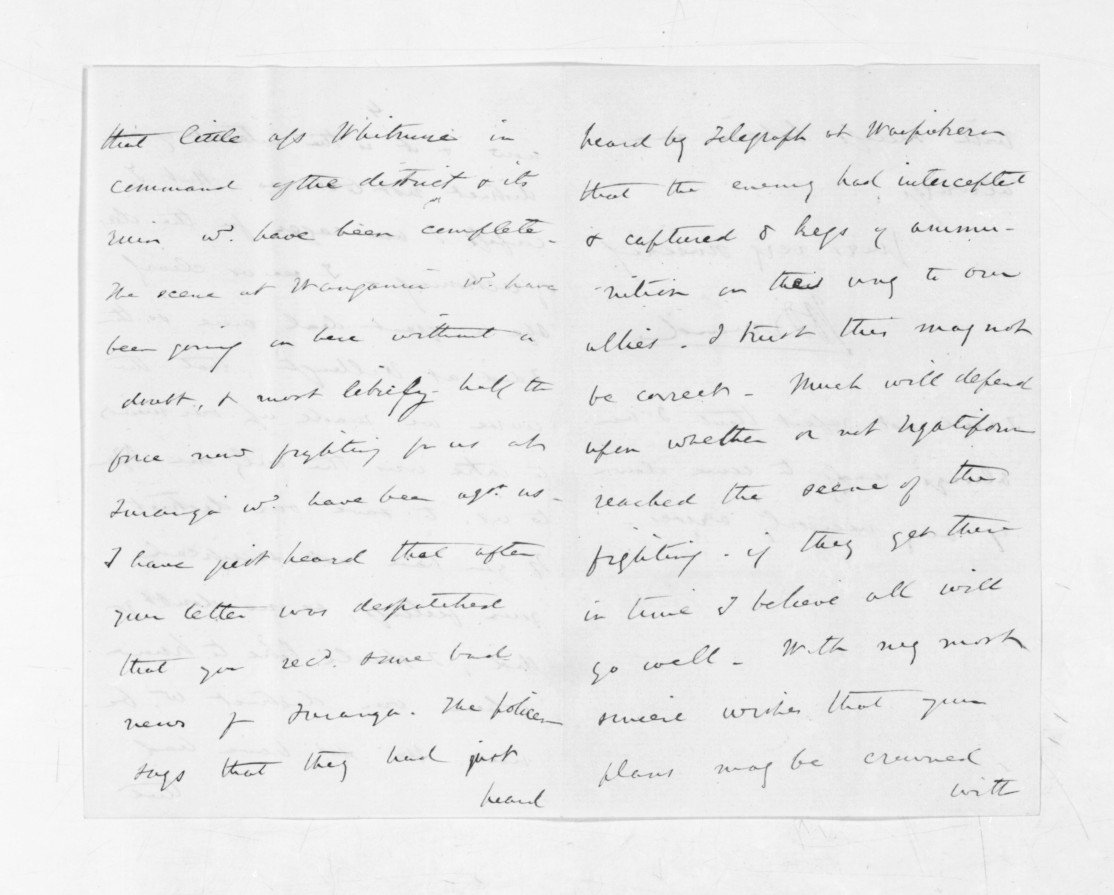 that little ass Whitmore in
command of the district & its
ruin wd. have been complete -
The scene at Wanganui wd. have
been going on here without a
doubt, & most likely half the
force now fighting for us at
Turanga wd. have been agst. us -
I have just heard that after
your letter was despatched
that you recd. some bad
news fr Turanga. The
says that they had just
heard
heard by Telegraph at Waipukurau
that the enemy had intercepted
& captured 8 kegs of ammu-
nition on their way to our
allies. I trust this may not
be correct - Much will depend
upon whether or not Ngatiporou
reached the scene of the
fighting - if they get there
in time I believe all will
go well - With my most
sincere wishes that your
plans may be crowned
with